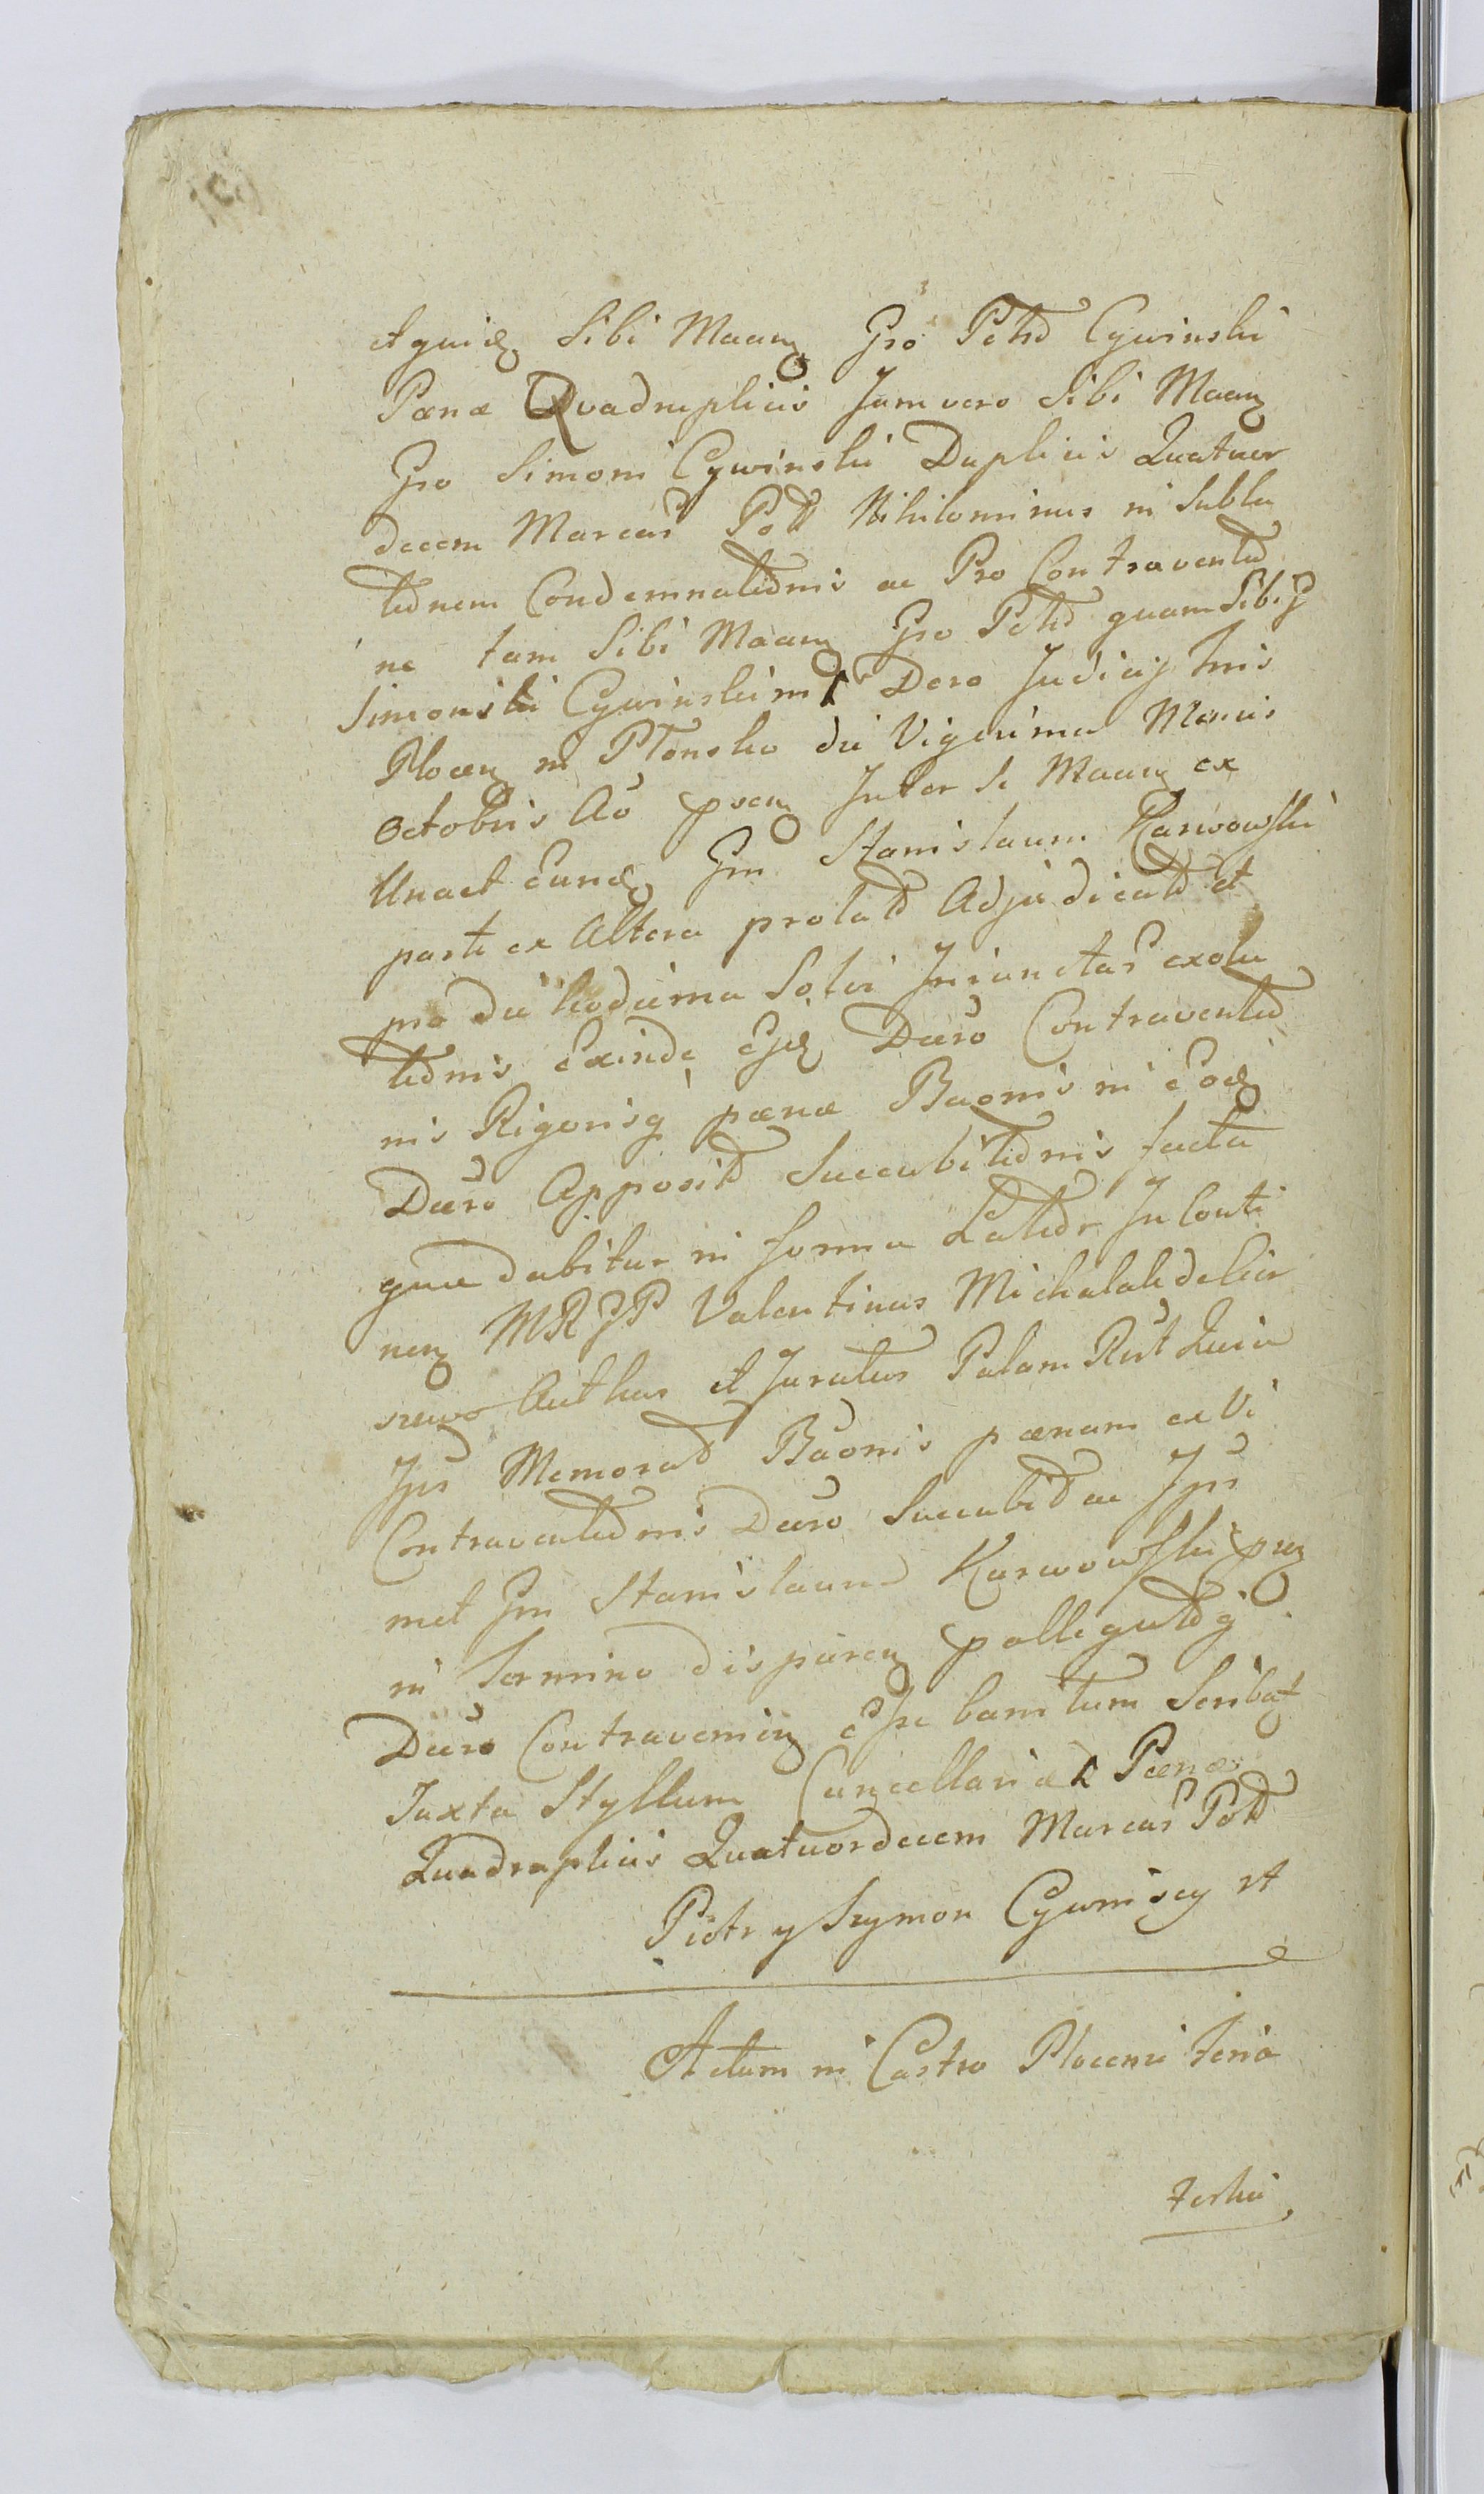 et quid Sibi Maan Gso Petro Cywinski
Pœnæ Quadruplicis Jam vero Sibi Maan
Gso Simoni Cywinski Duplicis Quatuor
decem Marcas Poll Nihilominus in Subla
tionem Condemnationis ac Pro Contraventio
ne tam Sibi Maan Gso Petro quam Sibi G
Simoni Cywinskim Dero Judicij Tris
Plocen in Płonsko die Vigesima Mensis
octobris Ao psen Inter se Maan ex
Una et Eund Gm Stanislaum Karwowski
parte ex Altera prolato Adjudicato et
pro die hodierna Solvi Iniunctas exolu
tionis Exinde Ejd Decro Contraventio
nis Rigorisq pœnæ Baonis in Eod
Decro Apposito Succubitionis facta
quæ dabitur in forma Latior In Conti
nen MRGP Valentinus Michalak de
Authus et Juratus Palam Rut Quia
Ips Memorat Baonis pœnam ex Vi
Contraventionis Decro Succubit ac Ips
met Gm Stanislaum Karwowski pñ
in Termino disparen
Decro Contravenien esse banitum Scribat
Iuxta Styllum Cancellariæ Pœnæ
Quadruplicis Quatuordecem Marcas Poll
Piotr y Szymon Cywinscy
Actum in Castro Plocensi feria
tertia